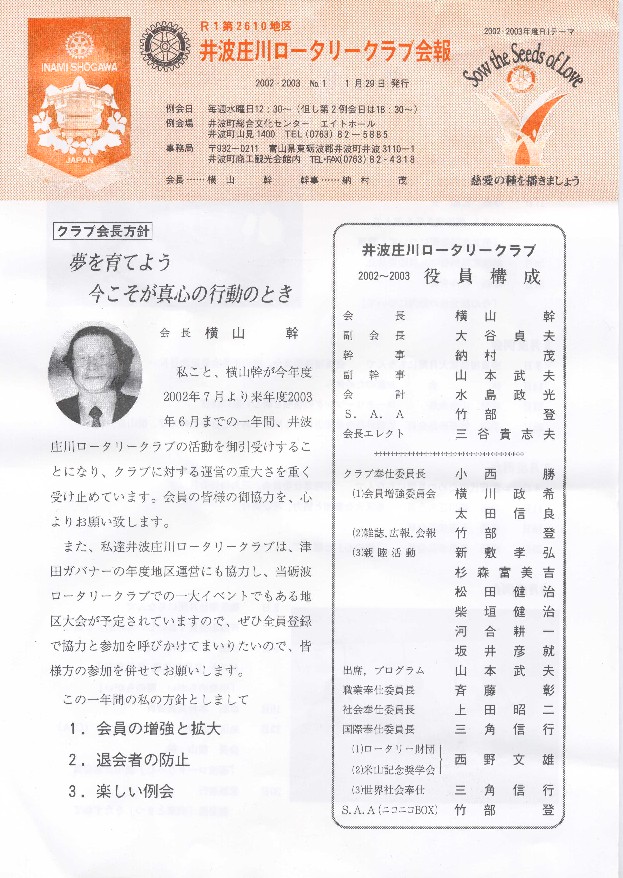 INAMI-SHOGAWA
JAPAN
RI第2610地区
井波庄川ロータリークラブ会報
2002-2003 No.1 1月29日発行
例会日 毎週水曜日12:30~(但し第2例会日は18:30~)
例会場 井波町総合文化センター エイトホール
井波町山見1400 TEL(0763)82-5885
事務局 〒932-0211 富山県東砺波郡井波町井波3110-1
井波町商工観光会館内 TEL・FAX(0763)82-4318
会長……横山 幹 幹事……納村 茂
2002-2003年度RIテーマ
Sow the Seeds of Love
慈愛の種を播きましょう
クラブ会長方針
夢を育てよう
今こそが真心の行動のとき
会長 横山 幹
私こと、横山幹が今年度
2002年7月より来年度2003
年6月までの一年間、井波
庄川ロータリークラブの活動を御引受けするこ
とになり、クラブに対する運営の重大さを重く
受け止めています。会員の皆様の御協力を、心
よりお願い致します。
また、私達井波庄川ロータリークラブは、津
田ガバナーの年度地区運営にも協力し、当砺波
ロータリークラブでの一大イベントでもある地
区大会が予定されていますので、ぜひ全員登録
で協力と参加を呼びかけてまいりたいので、皆
様方の参加を併せてお願いします。
この一年間の私の方針としまして
1.会員の増強と拡大
2.退会者の防止
3.楽しい例会
井波庄川ロータリークラブ
2002~2003 役員構成
会長 横山 幹
副会長 大谷貞夫
幹事 納村 茂
副幹事 山本武夫
会計 水島政光
S.A.A 竹部 登
会長エレクト 三谷貴志夫
クラブ奉仕委員長 小西 勝
(1)会員増強委員会 横川政希
太田信良
(2)雑誌.広報.会報 竹部 登
(3)親睦活動 新敷孝弘
杉森富美吉
松田健治
柴垣健治
河合耕一
坂井彦就
出席,プログラム 山本武夫
職業奉仕委員長 斉藤 彰
社会奉仕委員長 上田昭二
国際奉仕委員長 三角信行
(1)ロータリー財団
(2)米山記念奨学会 西野文雄
(3)世界社会奉仕 三角信行
S.A.A(ニコニコBOX) 竹部 登